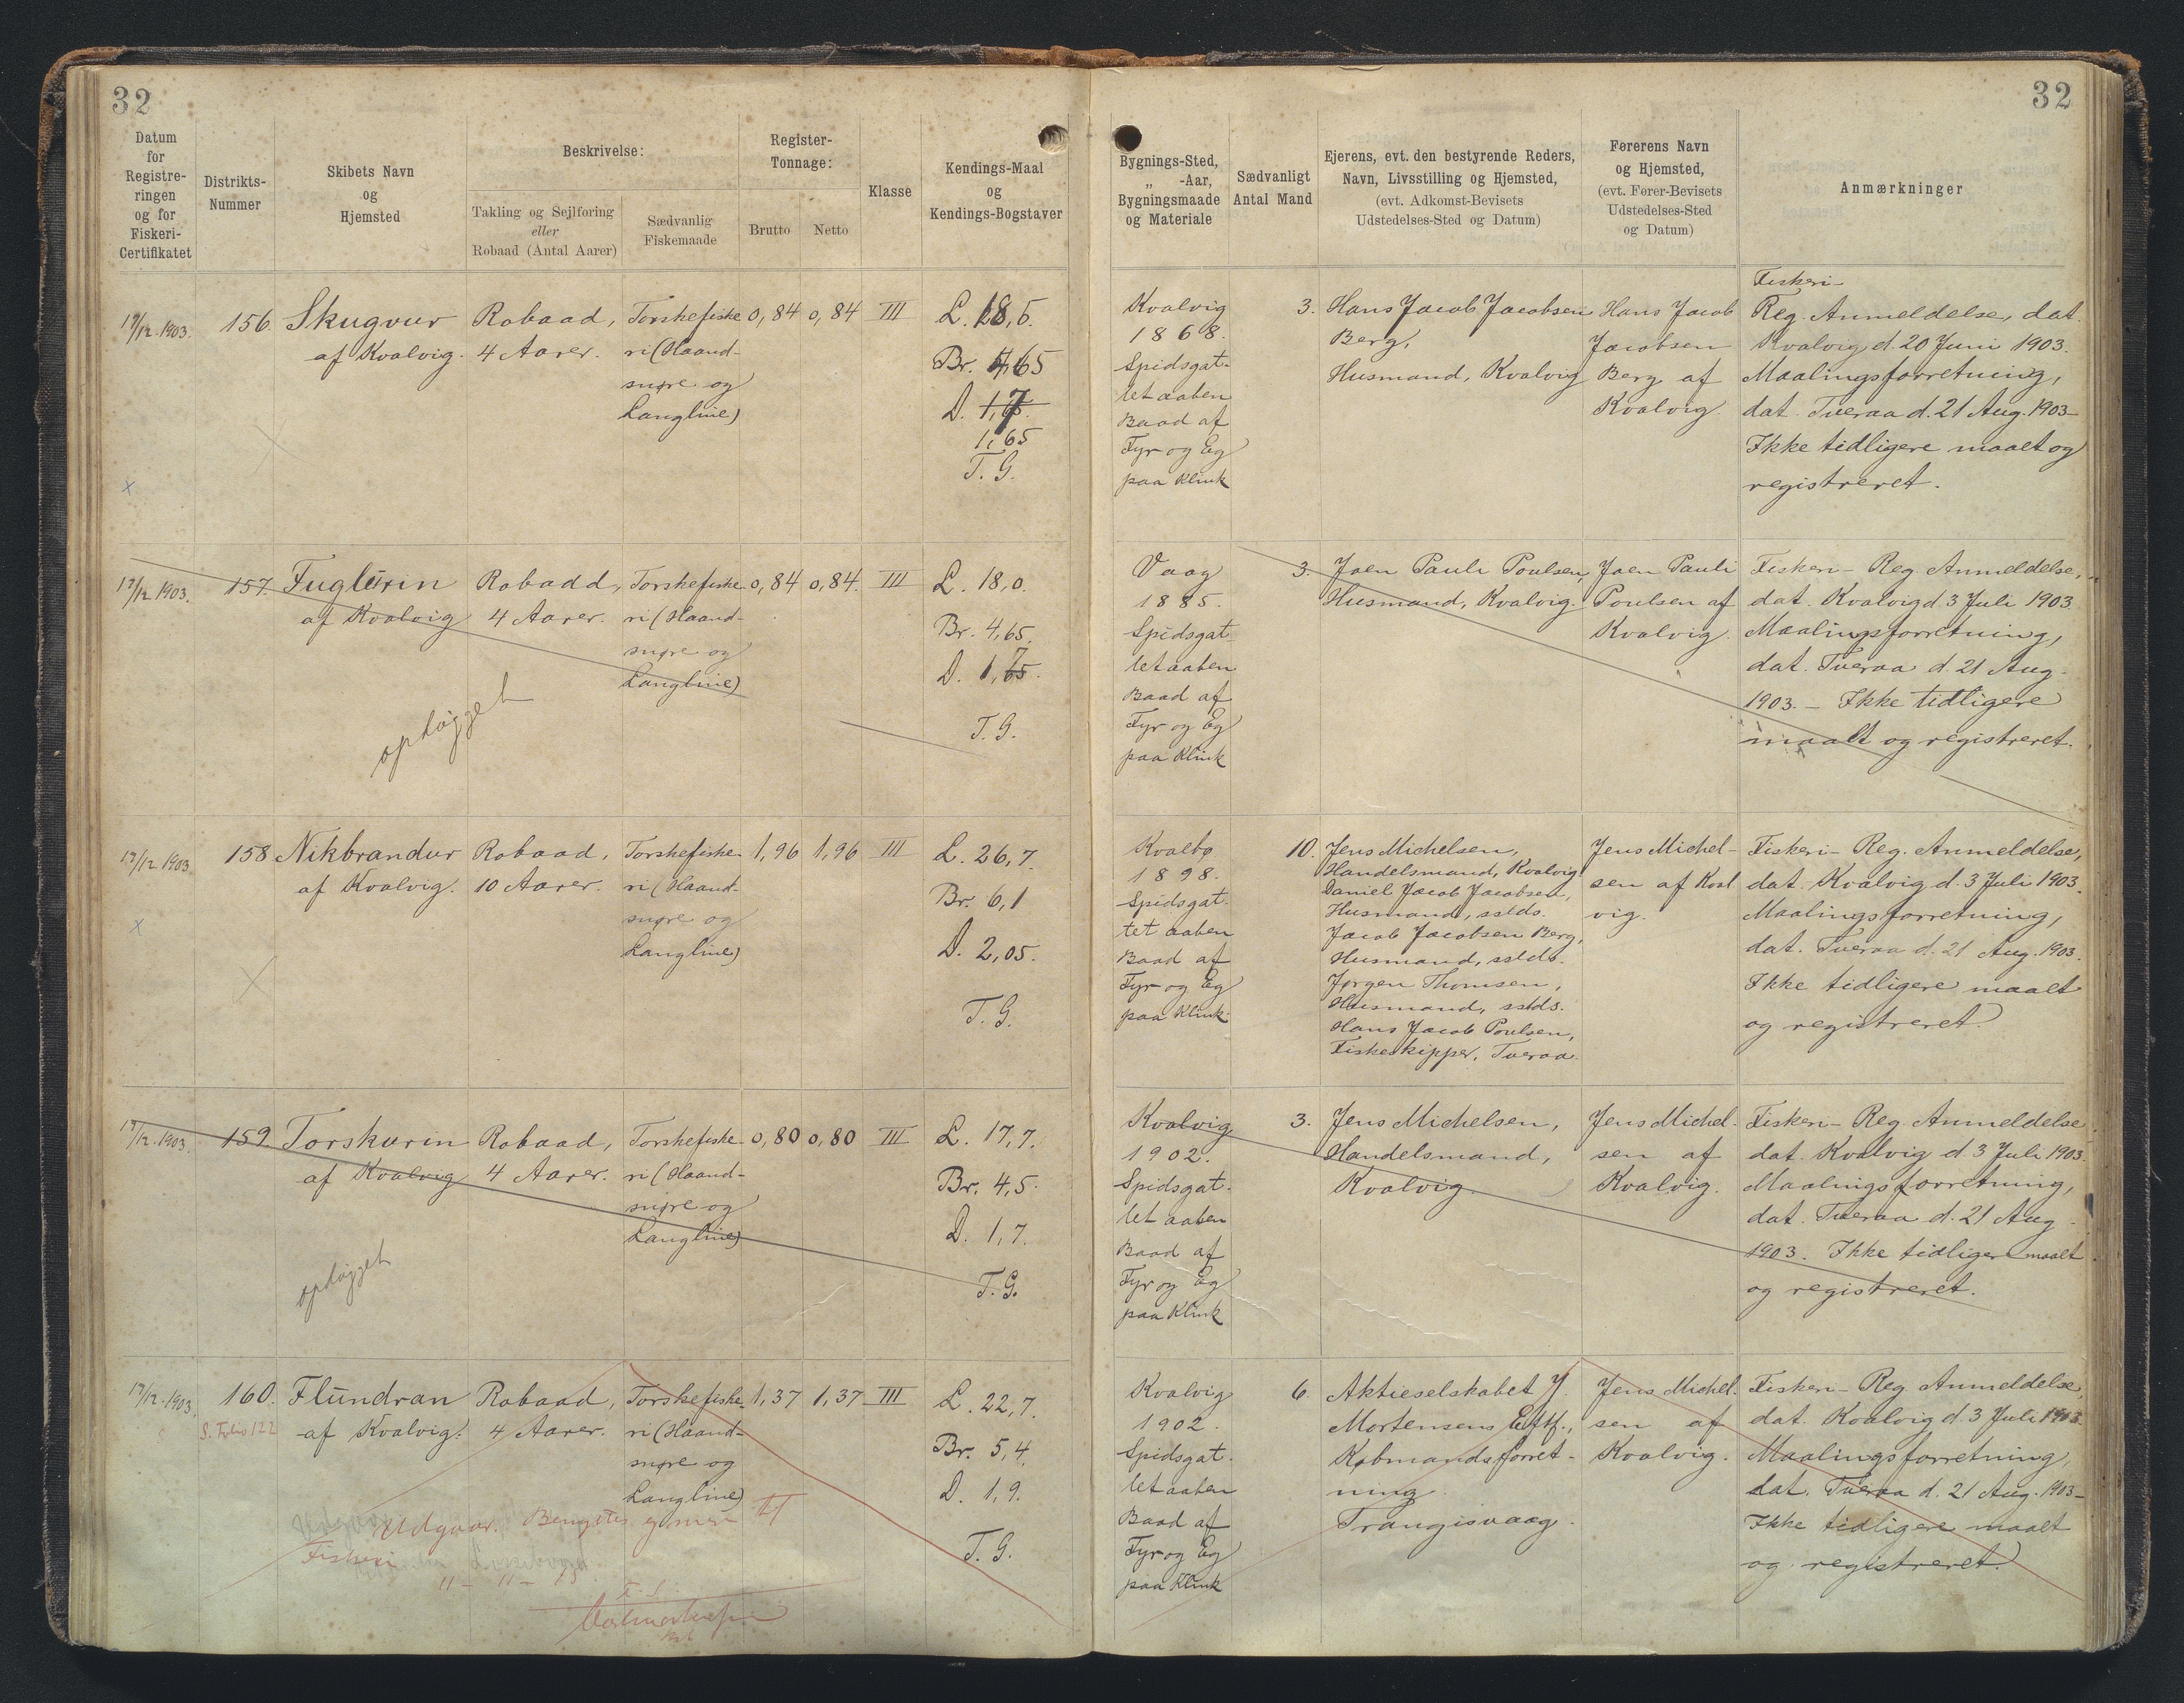 32
32
Datum
for
Registre-
ringen
og for
Fiskeri-
Certifikatet
Distrikts-
Nummer
Skibets Navn
og
Hjemsted
Beskrivelse:
Takling og Sejlføring
eller
Robaad (Antal Aarer)
Sædvanlig
Fiskemaade
Register-
Tonnage:
Brutto
Netto
Klasse
Kendings-Maal
og
Kendings-Bogstaver
Bygnings-Sted,
„ -Aar,
Bygningsmaade
og Materiale
Sædvanligt
Antal Mand
Ejerens, evt. den bestyrende Reders,
Navn, Livsstilling og Hjemsted,
(evt. Adkomst-Bevisets
Udstedelses-Sted og Datum)
Førerens Navn
og Hjemsted,
(evt. Fører-Bevisets
Udstedelses-Sted
og Datum)
Anmærkninger
17/12. 1903.
156.
Skugvur
af Kvalvig.
Robaad,
4 Aarer.
Torskefiske
ri (Haand-
snøre og
Langline)
0,84
0,84
III
L. 18,5.
Br. 4,65
D. 1,7
1,65
T. G.
Kvalvig
1868.
Spidsgat-
tet aaben
Baad af
Fyr og Eg
paa Klink
3.
Hans Jacob Jacobsen
Berg,
Husmand, Kvalvig
Hans Jacob
Jacobsen
Berg af
Kvalvig
Fiskeri-
Reg. Anmeldelse, dat.
Kvalvig d. 20 Juni 1903.
Maalingsforretning,
dat. Tveraa d. 21 Aug. 1903-
Ikke tidligere maalt og
registreret.
17/12 1903.
157.
Fuglūrin
af Kvalvig
Robadd,
4 Aarer.
Torskefiske
ri (Haand-
snøre og
Langline)
0,84
0,84.
III
L. 18,0.
Br. 4,65.
7
D. 1,65.
T. G.
ophøgget
Vaag
1885.
Spidsgat
tet aaben
Baad af
Fyr og Eg
paa Klink
3.
Joen Pauli Poulsen,
Husmand, Kvalvig.
Joen Pauli
Poulsen af
Kvalvig.
Fiskeri- Reg. Anmeldelse,
dat. Kvalvig d. 3 Juli 1903.
Maalingsforretning,
dat. Tveraa d. 21 Aug.
1903. - Ikke tidligere
maalt og registreret.
17/12 1903
158
Nikbrandur
af Kvalvig.
Robaad,
10 Aarer.
Torskefiske
ri (Haand-
snøre og
Langline)
1,96
1,96
III
L. 26,7
Br. 6,1
D. 2,05.
T. G.
Kvalbø
1898.
Spidsgat-
tet aaben
Baad af
Fyr og Eg
paa Klink
10.
Jens Michelsen,
Handelsmand, Kvalvig
Daniel Jacob Jacobsen,
Husmand, sstds.
Jacob Jacobsen Berg,
Husmand, sstds.
Jørgen Thomsen,
Husmand, sstds.
Hans Jacob Poulsen,
Fiskeskipper, Tveraa.
Jens Michel-
sen af Kval
vig.
Fiskeri- Reg. Anmeldelse,
dat. Kvalvig d. 3 Juli 1903.
Maalingsforretning,
dat. Tveraa d. 21 Aug. 1903.
Ikke tidligere maalt
og registreret.
17/12. 1903.
159.
Torskurin
af Kvalvig
Robaad,
4 Aarer.
Torskefiske
ri (Haand-
snøre og
Langline)
0,80
0,80
III
L. 17,7.
Br. 4,5.
D. 1,7.
T. G.
ophøgget
Kvalvig
1902.
Spidsgat-
tet aaben
Baad af
Fyr og Eg
paa Klink
3.
Jens Michelsen,
Handelsmand,
Kvalvig
Jens Michel-
sen af
Kvalvig.
Fiskeri- Reg. Anmeldelse
dat. Kvalvig d 3 Juli 1903.
Maalingsforretning,
dat. Tveraa d. 21 Aug
1903. Ikke tidligere maalt
og registreret.
17/12. 1903.
160.
S. Folio 122
Flūndran
af Kvalvig.
Robaad,
4 Aarer.
Torskefiske
ri (Haand-
snøre og
Langline)
1,37
1,37
III
L. 22,7.
Br. 5,4.
D. 1,9.
T. G.
Udgaar.
Fiskeri
11 - 11 - 15
T. S.
Kvalvig
1902.
Spidsgat-
tet aaben
Baad af
Fyr og Eg
paa Klink
6.
Aktieselskabet J.
Mortensens Eftf.,
Købmandsforret-
ning
Trangisvaag.
Jens Michel-
sen af
Kvalvig.
Fiskeri- Reg. Anmeldelse,
dat. Kvalvig d. 3 Juli 1903.
Maalingsforretning,
dat. Tveraa d. 21 Aug. 1903-
Ikke tidligere maalt
og registreret.